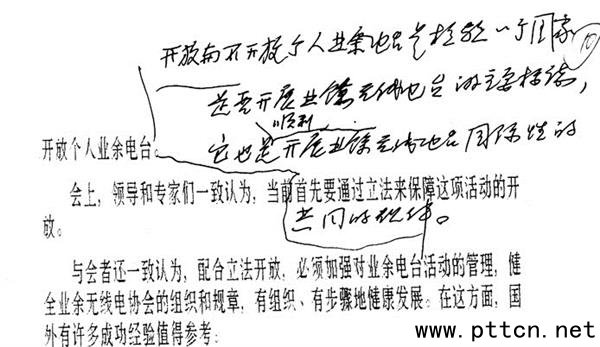 开放与不开放个人业余电台是检验一个国家
是否开展业馀无线电台的主要标志，
顺利
它也是开展业馀无线电台国际性的
共同的规律。
开放个人业余电台。
会上，领导和专家们一致认为，当前首先要通过立法来保障这项活动的开
放。
与会者还一致认为，配合立法开放，必须加强对业余电台活动的管理，健
全业余无线电协会的组织和规章，有组织、有步骤地健康发展。在这方面，国
外有许多成功经验值得参考：
www.pttcn.net